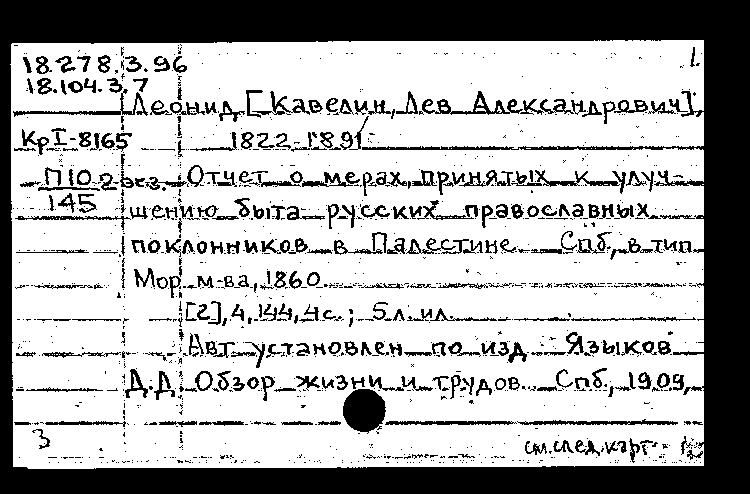 1.
18.278.3.96
18.104.3.7
Леонид [Кавелин, Лев Александрович],
КрI-8165 1822-1891
П10 2 экз. Отчет о мерах, принятых к улуч-
145
шению быта русских православных
поклонников в Палестине. Спб., в тип.
Мор. м-ва, 1860.
[2], 4, 144, 4 с.; 5 л. ил.
Авт. установлен по изд.: Языков
Д.Д. Обзор жизни и трудов... Спб., 1909,
3 см. след. карт.